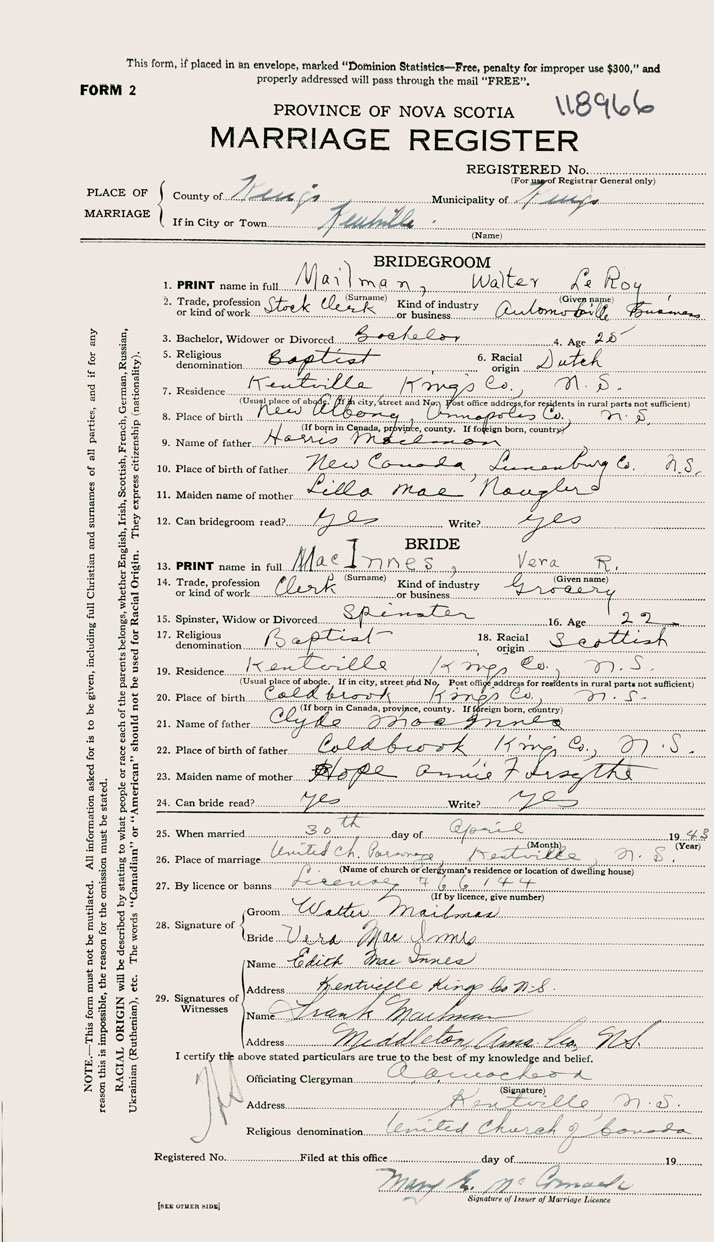 This form, if placed in an envelope, marked "Dominion Statistics—Free, penalty for improper use $300," and
properly addressed will pass through the mail "FREE".
FORM 2
118966
PROVINCE OF NOVA SCOTIA
MARRIAGE REGISTER
REGISTERED No.
(For use of Registrar General only)
PLACE OF MARRIAGE
County of Kings Municipality of Kings
If in City or Town Kentville
(Name)
BRIDEGROOM
1. PRINT name in full Mailman, Walter LeRoy
(Surname) (Given name)
2. Trade, profession or kind of work Stock Clerk Kind of industry or business Automobile Business
3. Bachelor, Widower or Divorced Bachelor 4. Age 25
5. Religious denomination Baptist 6. Racial origin Dutch
7. Residence Kentville Kings Co., N.S.
(Usual place of abode. If in city, street and No. Post office address for residents in rural parts not sufficient)
8. Place of birth New Albany, Annapolis Co., N.S.
(If born in Canada, province, county. If foreign born, country)
9. Name of father Harris Mailman
10. Place of birth of father New Canada, Lunenburg Co. N.S.
11. Maiden name of mother Lilla Mae Naugler
12. Can bridegroom read? yes Write? yes
BRIDE
13. PRINT name in full MacInnes, Vera R.
(Surname) (Given name)
14. Trade, profession or kind of work Clerk Kind of industry or business Grocery
15. Spinster, Widow or Divorced Spinster 16. Age 22
17. Religious denomination Baptist 18. Racial origin Scottish
19. Residence Kentville Kings Co., N.S.
(Usual place of abode. If in city, street and No. Post office address for residents in rural parts not sufficient)
20. Place of birth Coldbrook Kings Co., N.S.
(If born in Canada, province, county. If foreign born, country)
21. Name of father Clyde MacInnes
22. Place of birth of father Coldbrook Kings Co., N.S.
23. Maiden name of mother Hope Annie Forsythe
24. Can bride read? yes Write? yes
25. When married 30th day of April 1943
(Month) (Year)
26. Place of marriage United Ch. Parsonage, Kentville, N.S.
(Name of church or clergyman's residence or location of dwelling house)
27. By licence or banns License, #66144
(If by licence, give number)
28. Signature of
Groom Walter Mailman
Bride Vera MacInnes
29. Signatures of Witnesses
Name Edith MacInnes
Address Kentville Kings Co N.S.
Name Frank Mailman
Address Middleton, Anna. Co., N.S.
I certify the above stated particulars are true to the best of my knowledge and belief.
Officiating Clergyman
(Signature)
Address Kentville, N.S.
Religious denomination United Church of Canada
Registered No. Filed at this office day of 19
Mary E. McCormack
Signature of Issuer of Marriage Licence
[SEE OTHER SIDE]
NOTE.—This form must not be mutilated. All information asked for is to be given, including full Christian and surnames of all parties, and if for any
reason this is impossible, the reason for the omission must be stated.
RACIAL ORIGIN will be described by stating to what people or race each of the parents belongs, whether English, Irish, Scottish, French, German, Russian,
Ukrainian (Ruthenian), etc. The words "Canadian" or "American" should not be used for Racial Origin. They express citizenship (nationality).